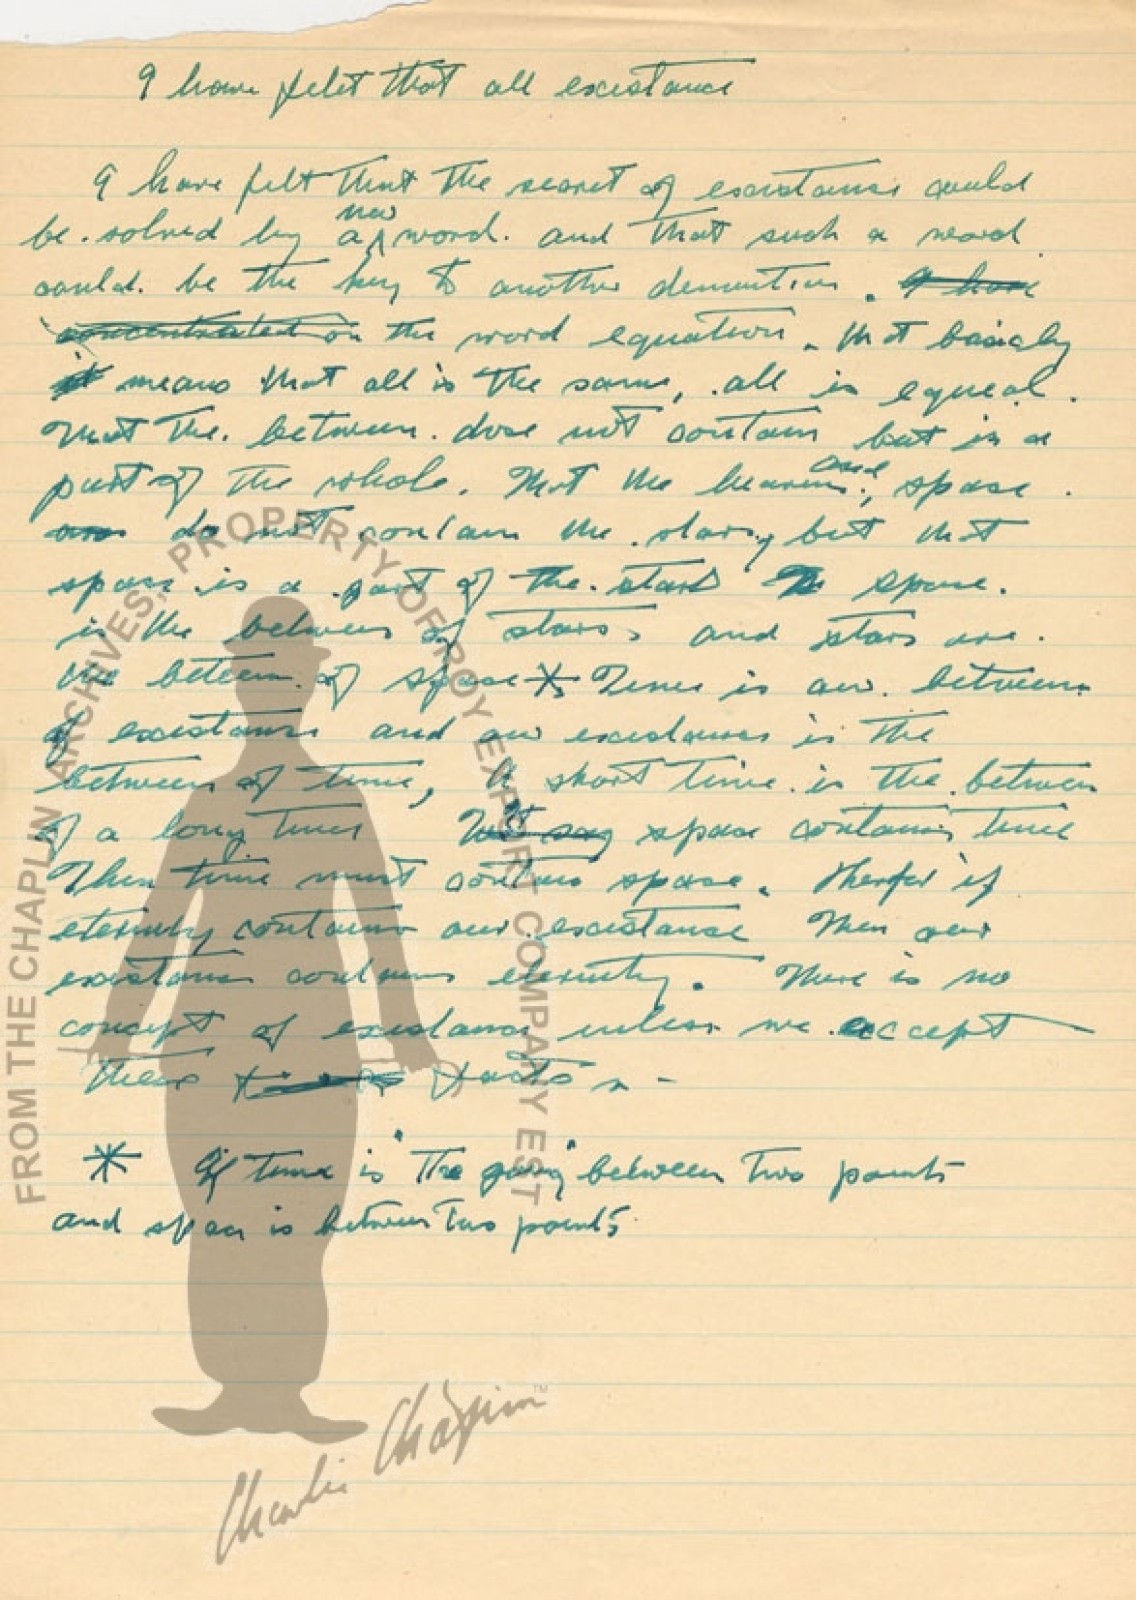 I have felt that all existance
I have felt that the secret of existance could
new
be solved by a word. and that such a word
could be the key to another demention. I have
concentrated on the word equation. that basicly
it means that all is the same, all is equal.
That the between dose not contain but is a
part of the whole. That the heavens, and space
are do not contain the stars, but that
space is a part of the stars space.
is the between of stars and stars are
the beteen of space * Time is our between
of existance and our existance is the
between of time, A short time is the between
of a long time space contains time
Then time must contain space. therfor if
eternity contains our existance Then our
existance contains eternity. There is no
concept of existance unless we accept
these facts
* If time is "the going" between two points
and space is between two points
FROM THE CHAPLIN ARCHIVES, PROPERTY OF ROY EXPORT COMPANY EST
Charlie Chaplin ™